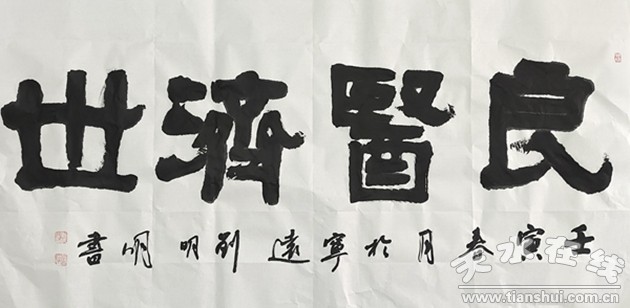 良醫濟世
壬寅春月於寧遠刘明明書
天水在线
www.tianshui.com.cn